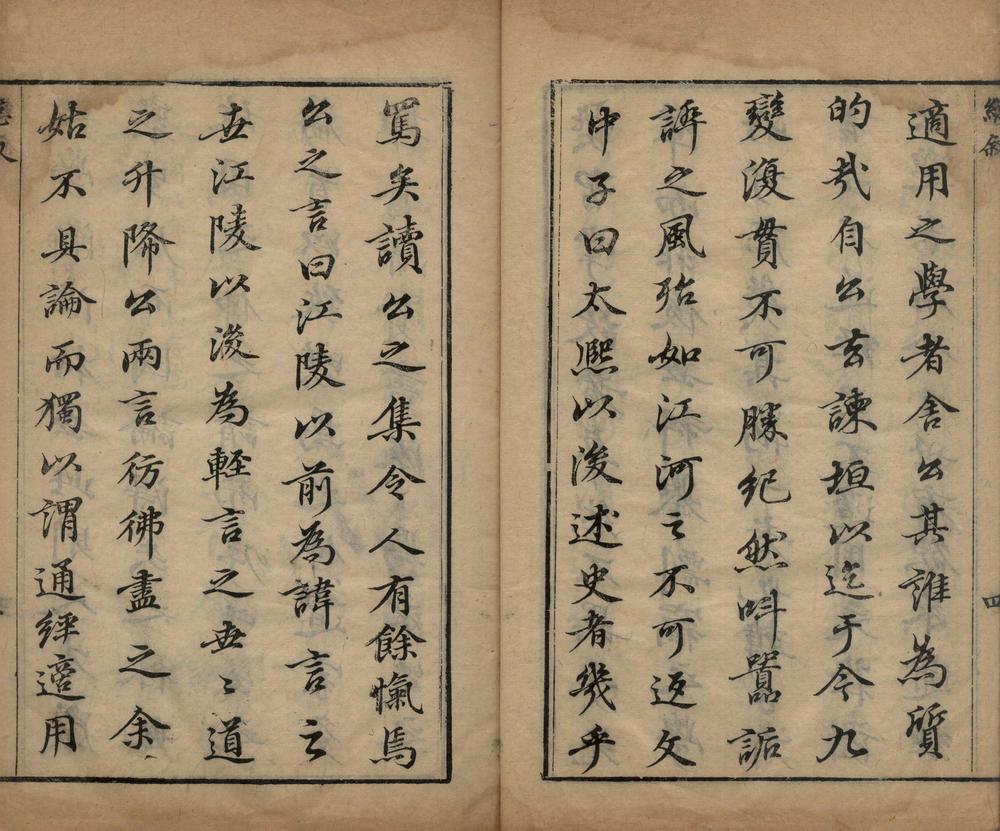 總敘
四
適用之學者舍公其誰為質
的哉自公去諫垣以迄于今九
變復貫不可勝紀然呌囂詬
誶之風殆如江河之不可返文
中子曰太熈以後述史者幾乎
罵矣讀公之集令人有餘愾焉
公之言曰江陵以前為諱言之
世江陵以後為輕言之世〻道
之升降公兩言彷彿盡之余
姑不具論而獨以謂通經適用